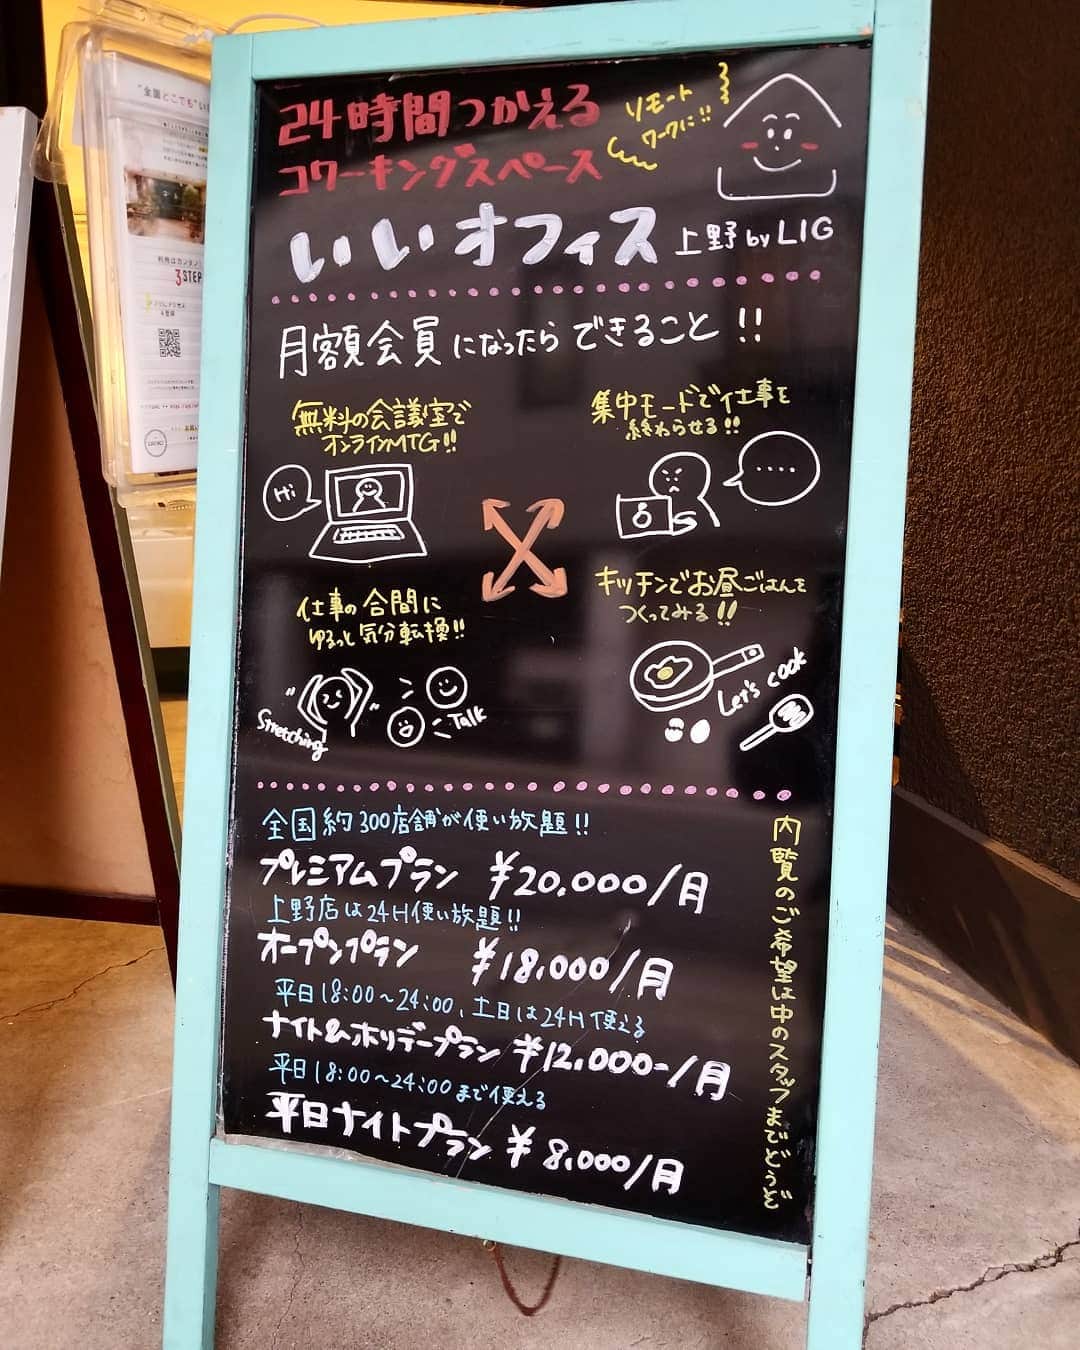 24時間つかえる
コワーキングスペース
リモート
ワークに!!
いいオフィス 上野 by LIG
月額会員になったらできること!!
無料の会議室で
オンラインMTG!!
Hi
集中モードで仕事を
終わらせる!!
....
仕事の合間に
ゆるっと気分転換!!
Stretching
Talk
キッチンでお昼ごはんを
つくってみる!!
Let's cook
全国約300店舗が使い放題!!
プレミアムプラン ¥20,000/月
上野店は24H使い放題!!
オープンプラン ¥18,000/月
平日18:00~24:00、土日は24H使える
ナイト&ホリデープラン ¥12,000-/月
平日18:00~24:00まで使える
平日ナイトプラン ¥8,000/月
内覧のご希望は中のスタッフまでどうぞ
"全国どこでも"い
利用はカンタン
3STEP